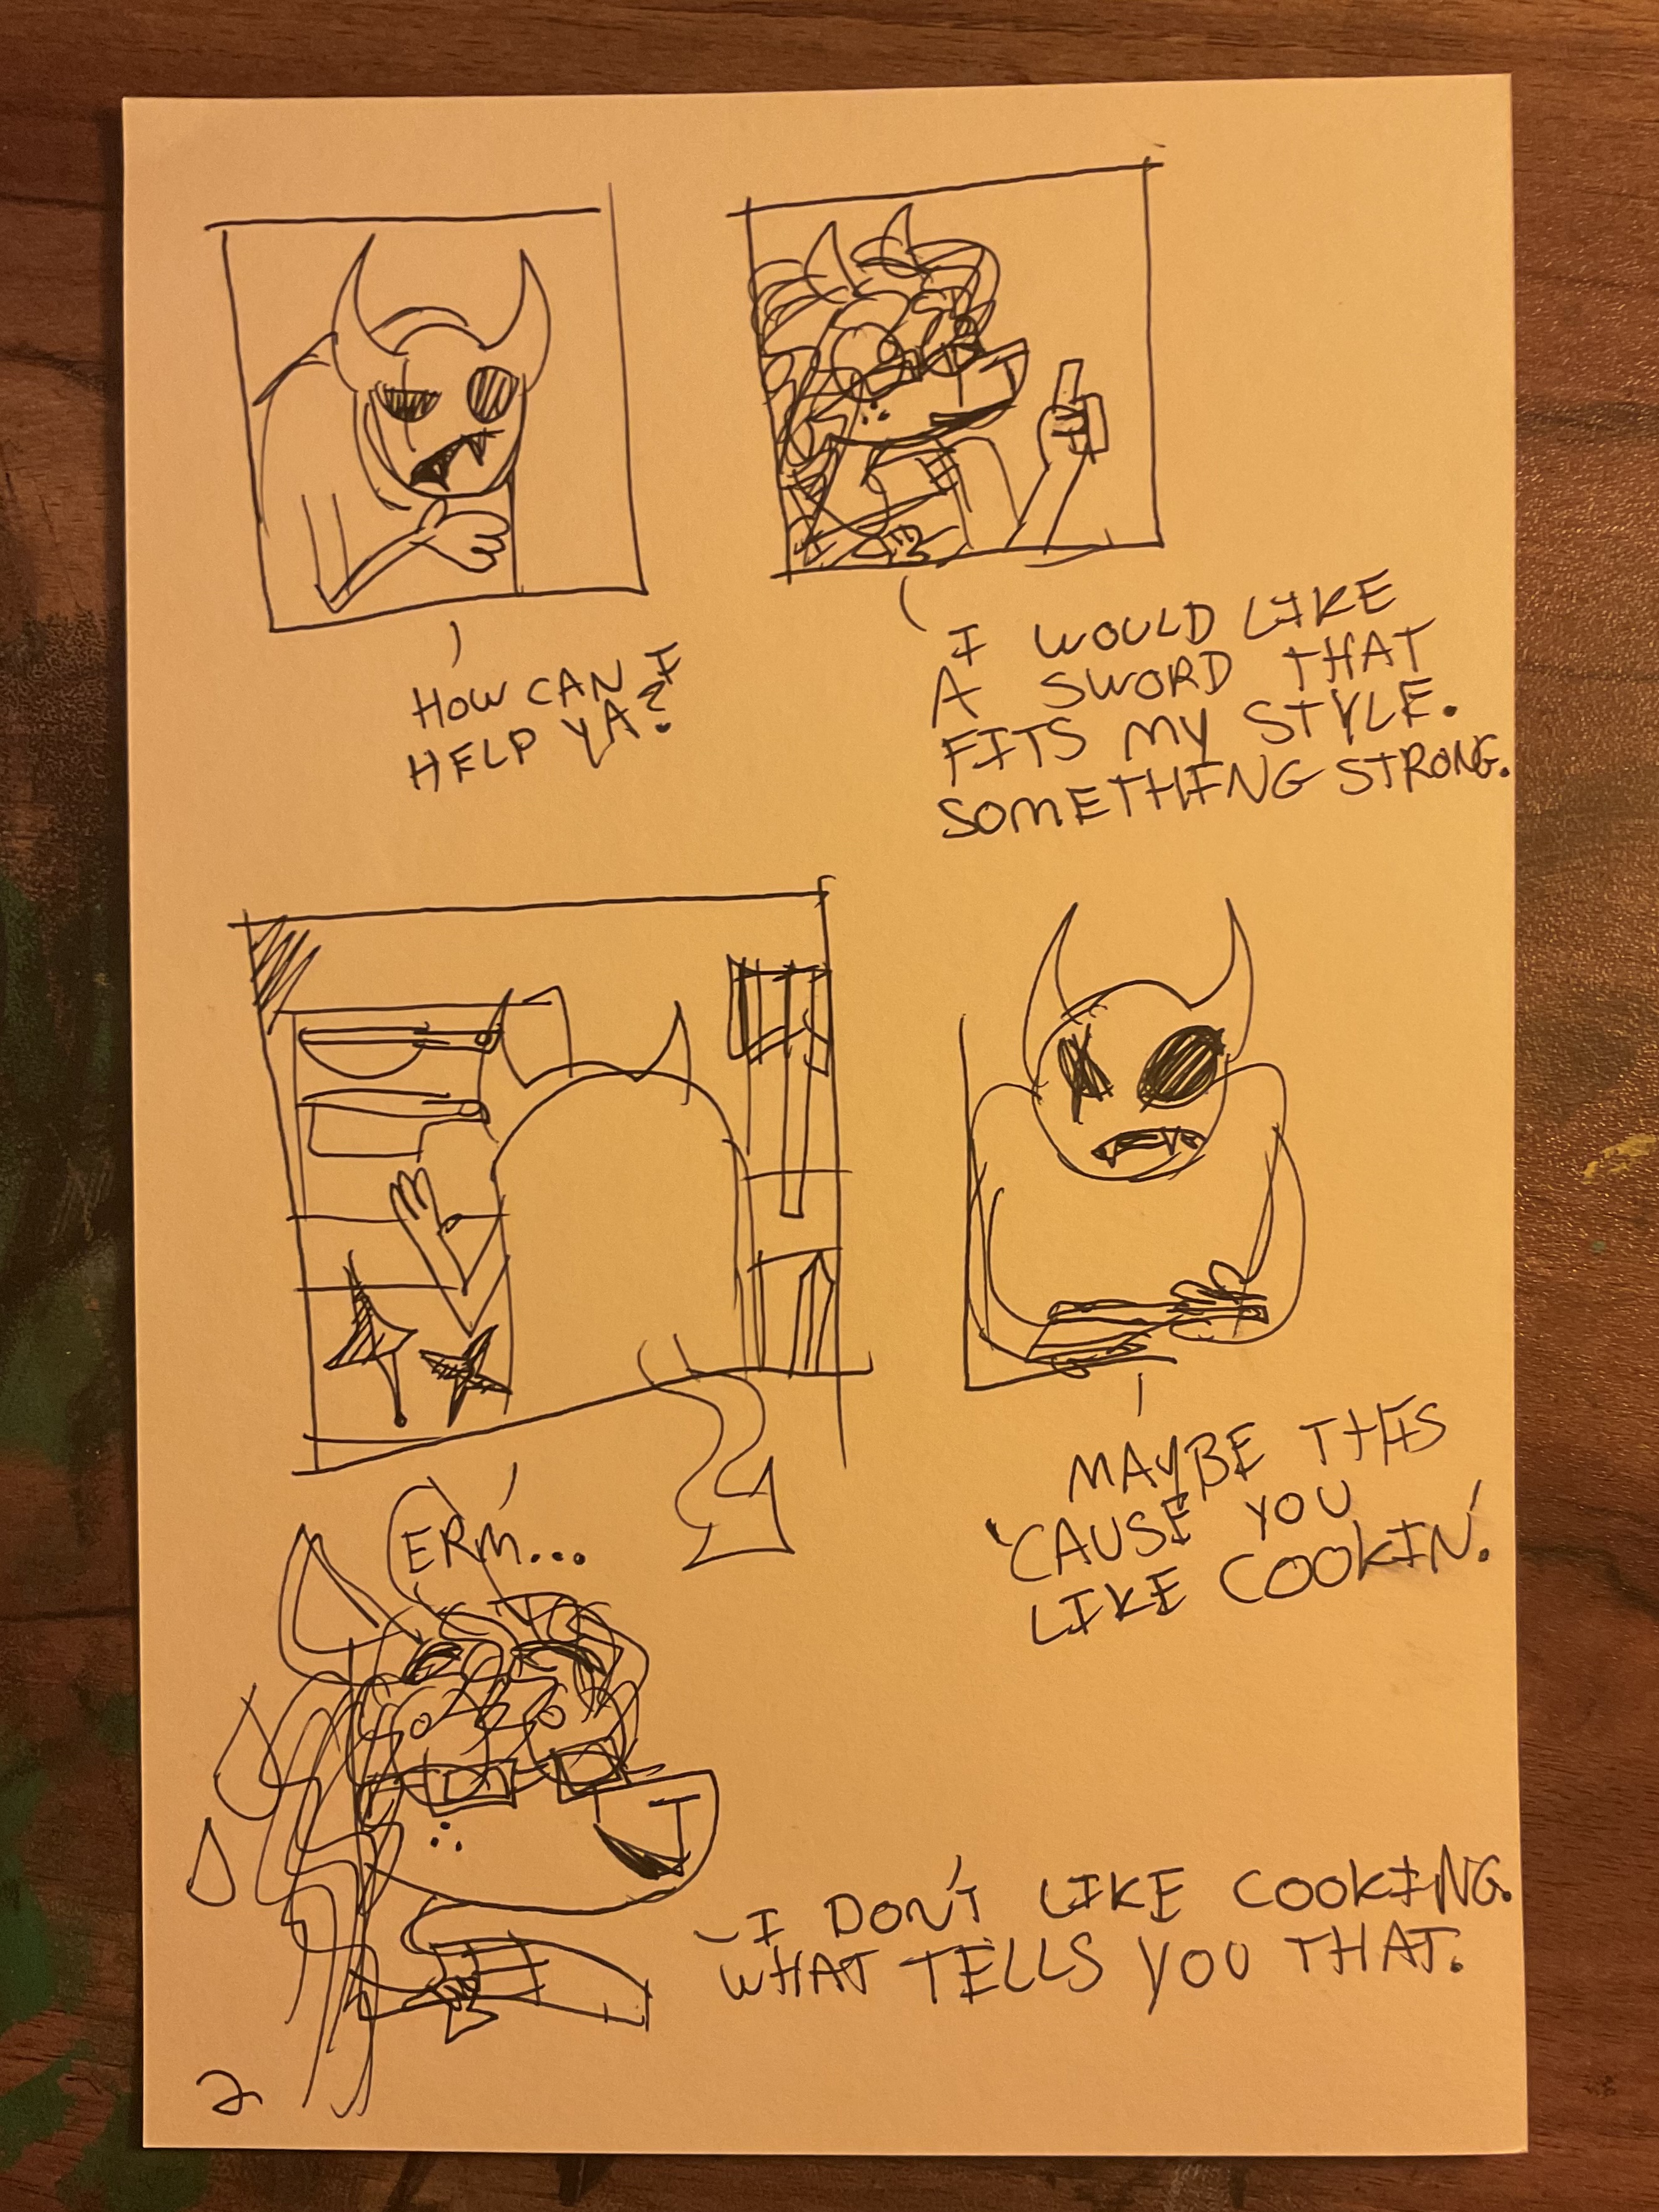 HOW CAN I
HELP YA?
I WOULD LIKE
A SWORD THAT
FITS MY STYLE.
SOMETHING STRONG.
ERM...
MAYBE THIS
'CAUSE YOU
LIKE COOKIN'.
I DON'T LIKE COOKING.
WHAT TELLS YOU THAT.
2